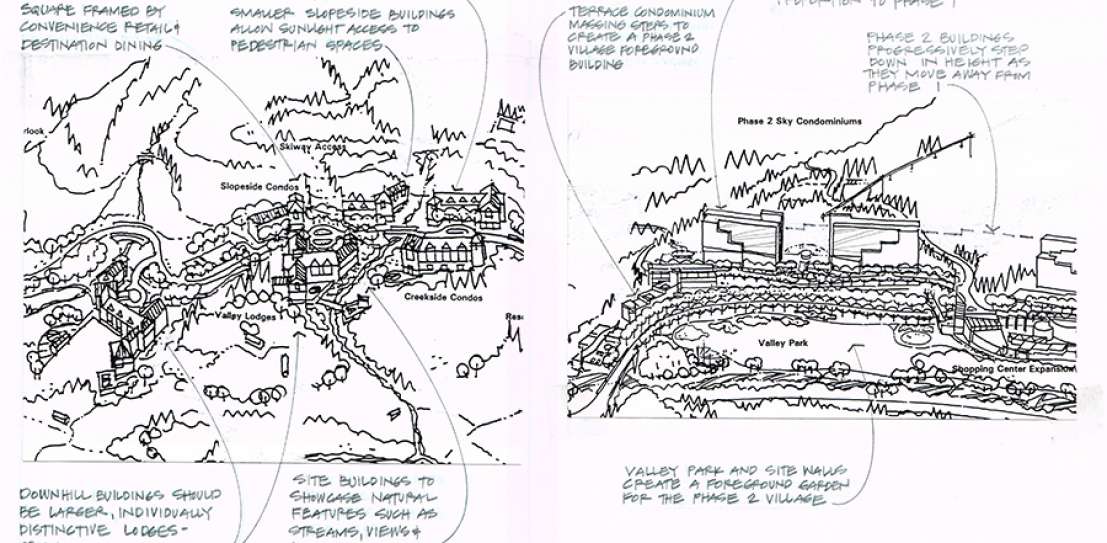 SQUARE FRAMED BY
CONVENIENCE RETAIL &
DESTINATION DINING
SMALLER SLOPESIDE BUILDINGS
ALLOW SUNLIGHT ACCESS TO
PEDESTRIAN SPACES
Skiway Access
Slopeside Condos
Creekside Condos
Valley Lodges
DOWNHILL BUILDINGS SHOULD
BE LARGER, INDIVIDUALLY
DISTINCTIVE LODGES-
SITE BUILDINGS TO
SHOWCASE NATURAL
FEATURES SUCH AS
STREAMS, VIEWS &
TERRACE CONDOMINIUM
MASSING STEPS TO
CREATE A PHASE 2
VILLAGE FOREGROUND
BUILDING
PROPORTION TO PHASE 1
PHASE 2 BUILDINGS
PROGRESSIVELY STEP
DOWN IN HEIGHT AS
THEY MOVE AWAY FROM
PHASE 1
Phase 2 Sky Condominiums
Valley Park
Shopping Center Expansion
VALLEY PARK AND SITE WALLS
CREATE A FOREGROUND GARDEN
FOR THE PHASE 2 VILLAGE